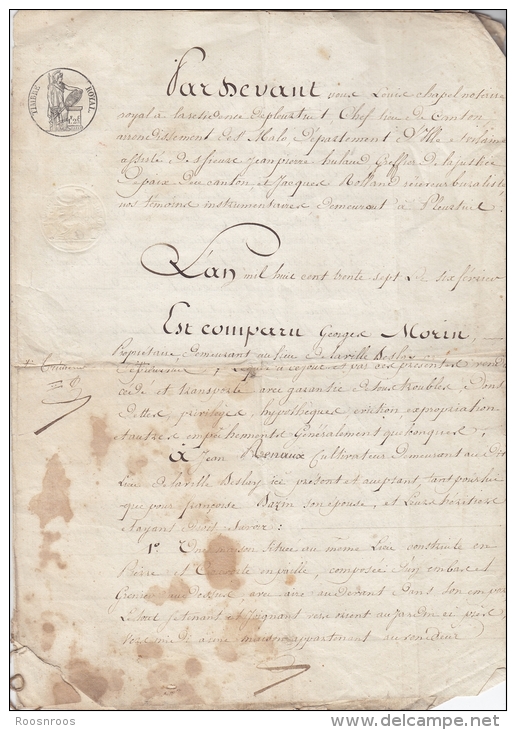 TIMBRE ROYAL
Par Devant nous Louis Chapel notaire
royal à la résidence de pleurtuit Chef lieu de Canton
arrondissement de St Malo, Département d'Ille et vilaine
assisté de sieurs Jean pierre Greffier de la justice
De paix du canton et Jacques Rolland receveur buraliste
nos témoins instrumentaires demeurant à Pleurtuit.
L'an mil huit cent trente sept Le six février
Est comparu Georges Morin,
Propriétaire, demeurant au lieu de la ville Beslay
Lequel a ce jour et par ces présentes vendu
cédé et transporté avec garantie de tous troubles, Dons
Dettes, privilèges, hypothèques, éviction, expropriation
et autres empêchements Généralement quelconques,
à Jean Renaux Cultivateur Demeurant au dit
Lieu de la ville Beslay ici présent et acceptant, tant pour lui
que pour françoise Bazin son épouse, et Leurs héritiers
et ayant Droit, Savoir:
1° Une maison située au même Lieu construite en
Pierre et Couverte en paille, composée d'un embas et
Grenier au dessus avec aire au devant Dans son
joignant vers orient au Jardin ci près
vers midi à une maison appartenant au vendeur
Roosnroos
www.delcampe.net